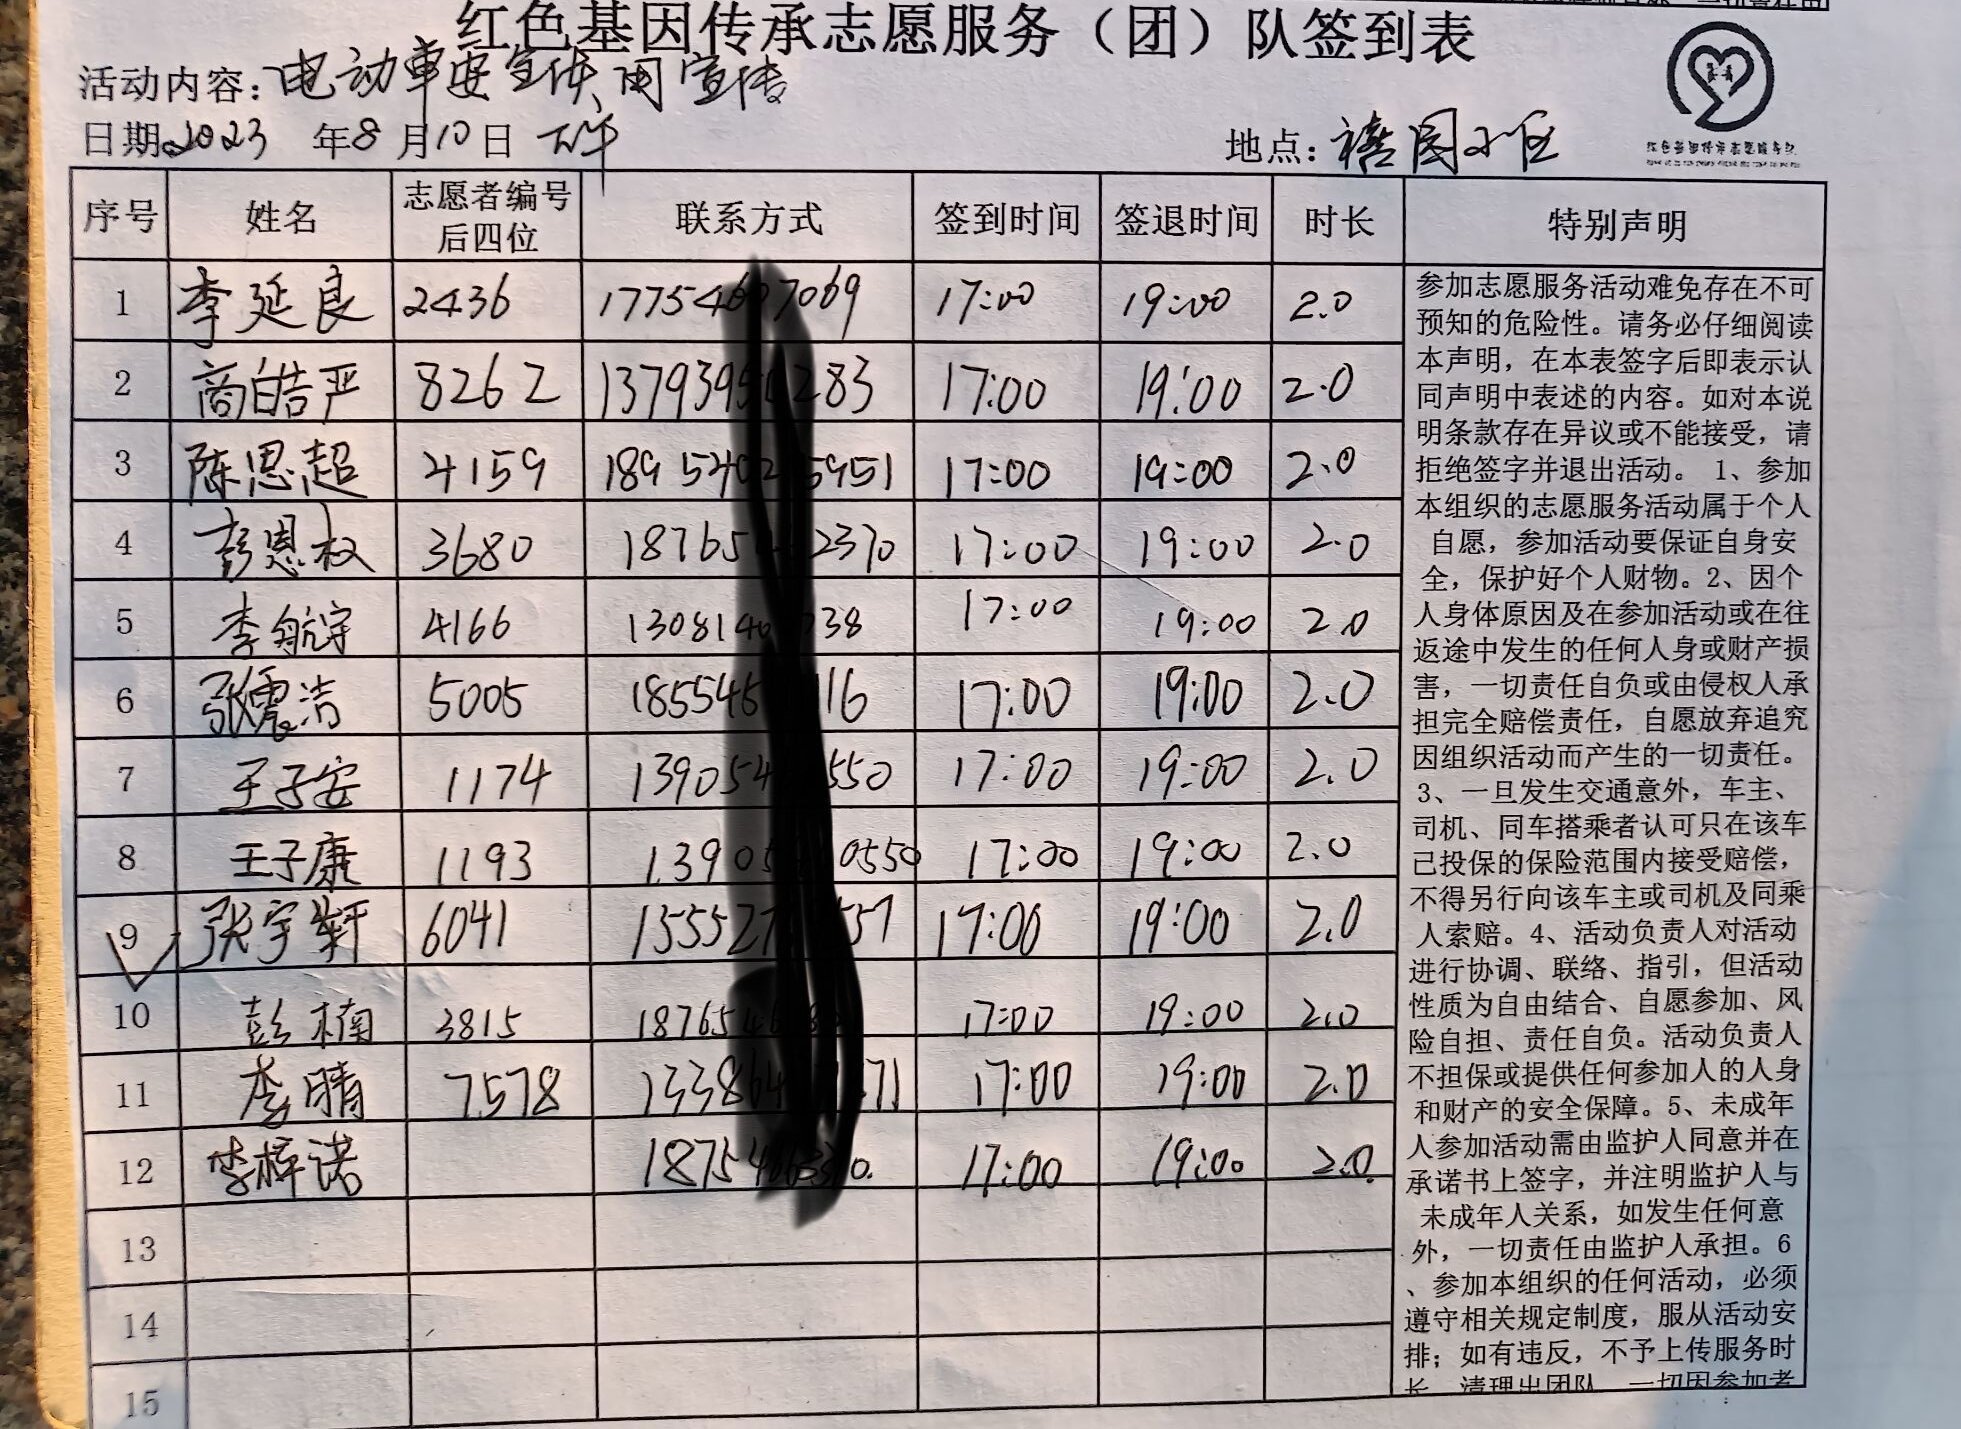 红色基因传承志愿服务（团）队签到表
活动内容：电动车安全使用宣传
日期2023 年8月10日 下午
地点：禧园小区
红色基因传承志愿服务队
序号 姓名 志愿者编号后四位 联系方式 签到时间 签退时间 时长 特别声明
1 李延良 2436 17:00 19:00 2.0
2 商皓严 8262 17:00 19:00 2.0
3 陈思超 4159 17:00 19:00 2.0
4 彭恩权 3680 17:00 19:00 2.0
5 李航宇 4166 17:00 19:00 2.0
6 张震洁 5005 17:00 19:00 2.0
7 王子安 1174 17:00 19:00 2.0
8 王子康 1193 17:00 19:00 2.0
9 张宇轩 6041 17:00 19:00 2.0
10 彭楠 3815 17:00 19:00 2.0
11 李晴 7578 17:00 19:00 2.0
12 李梓诺 17:00 19:00 2.0
13
14
15
参加志愿服务活动难免存在不可
预知的危险性。请务必仔细阅读
本声明，在本表签字后即表示认
同声明中表述的内容。如对本说
明条款存在异议或不能接受，请
拒绝签字并退出活动。 1、参加
本组织的志愿服务活动属于个人
自愿，参加活动要保证自身安
全，保护好个人财物。2、因个
人身体原因及在参加活动或在往
返途中发生的任何人身或财产损
害，一切责任自负或由侵权人承
担完全赔偿责任，自愿放弃追究
因组织活动而产生的一切责任。
3、一旦发生交通意外，车主、
司机、同车搭乘者认可只在该车
已投保的保险范围内接受赔偿，
不得另行向该车主或司机及同乘
人索赔。4、活动负责人对活动
进行协调、联络、指引，但活动
性质为自由结合、自愿参加、风
险自担、责任自负。活动负责人
不担保或提供任何参加人的人身
和财产的安全保障。5、未成年
人参加活动需由监护人同意并在
承诺书上签字，并注明监护人与
未成年人关系，如发生任何意
外，一切责任由监护人承担。6
、参加本组织的任何活动，必须
遵守相关规定制度，服从活动安
排；如有违反，不予上传服务时
长，清理出团队，一切因参加者